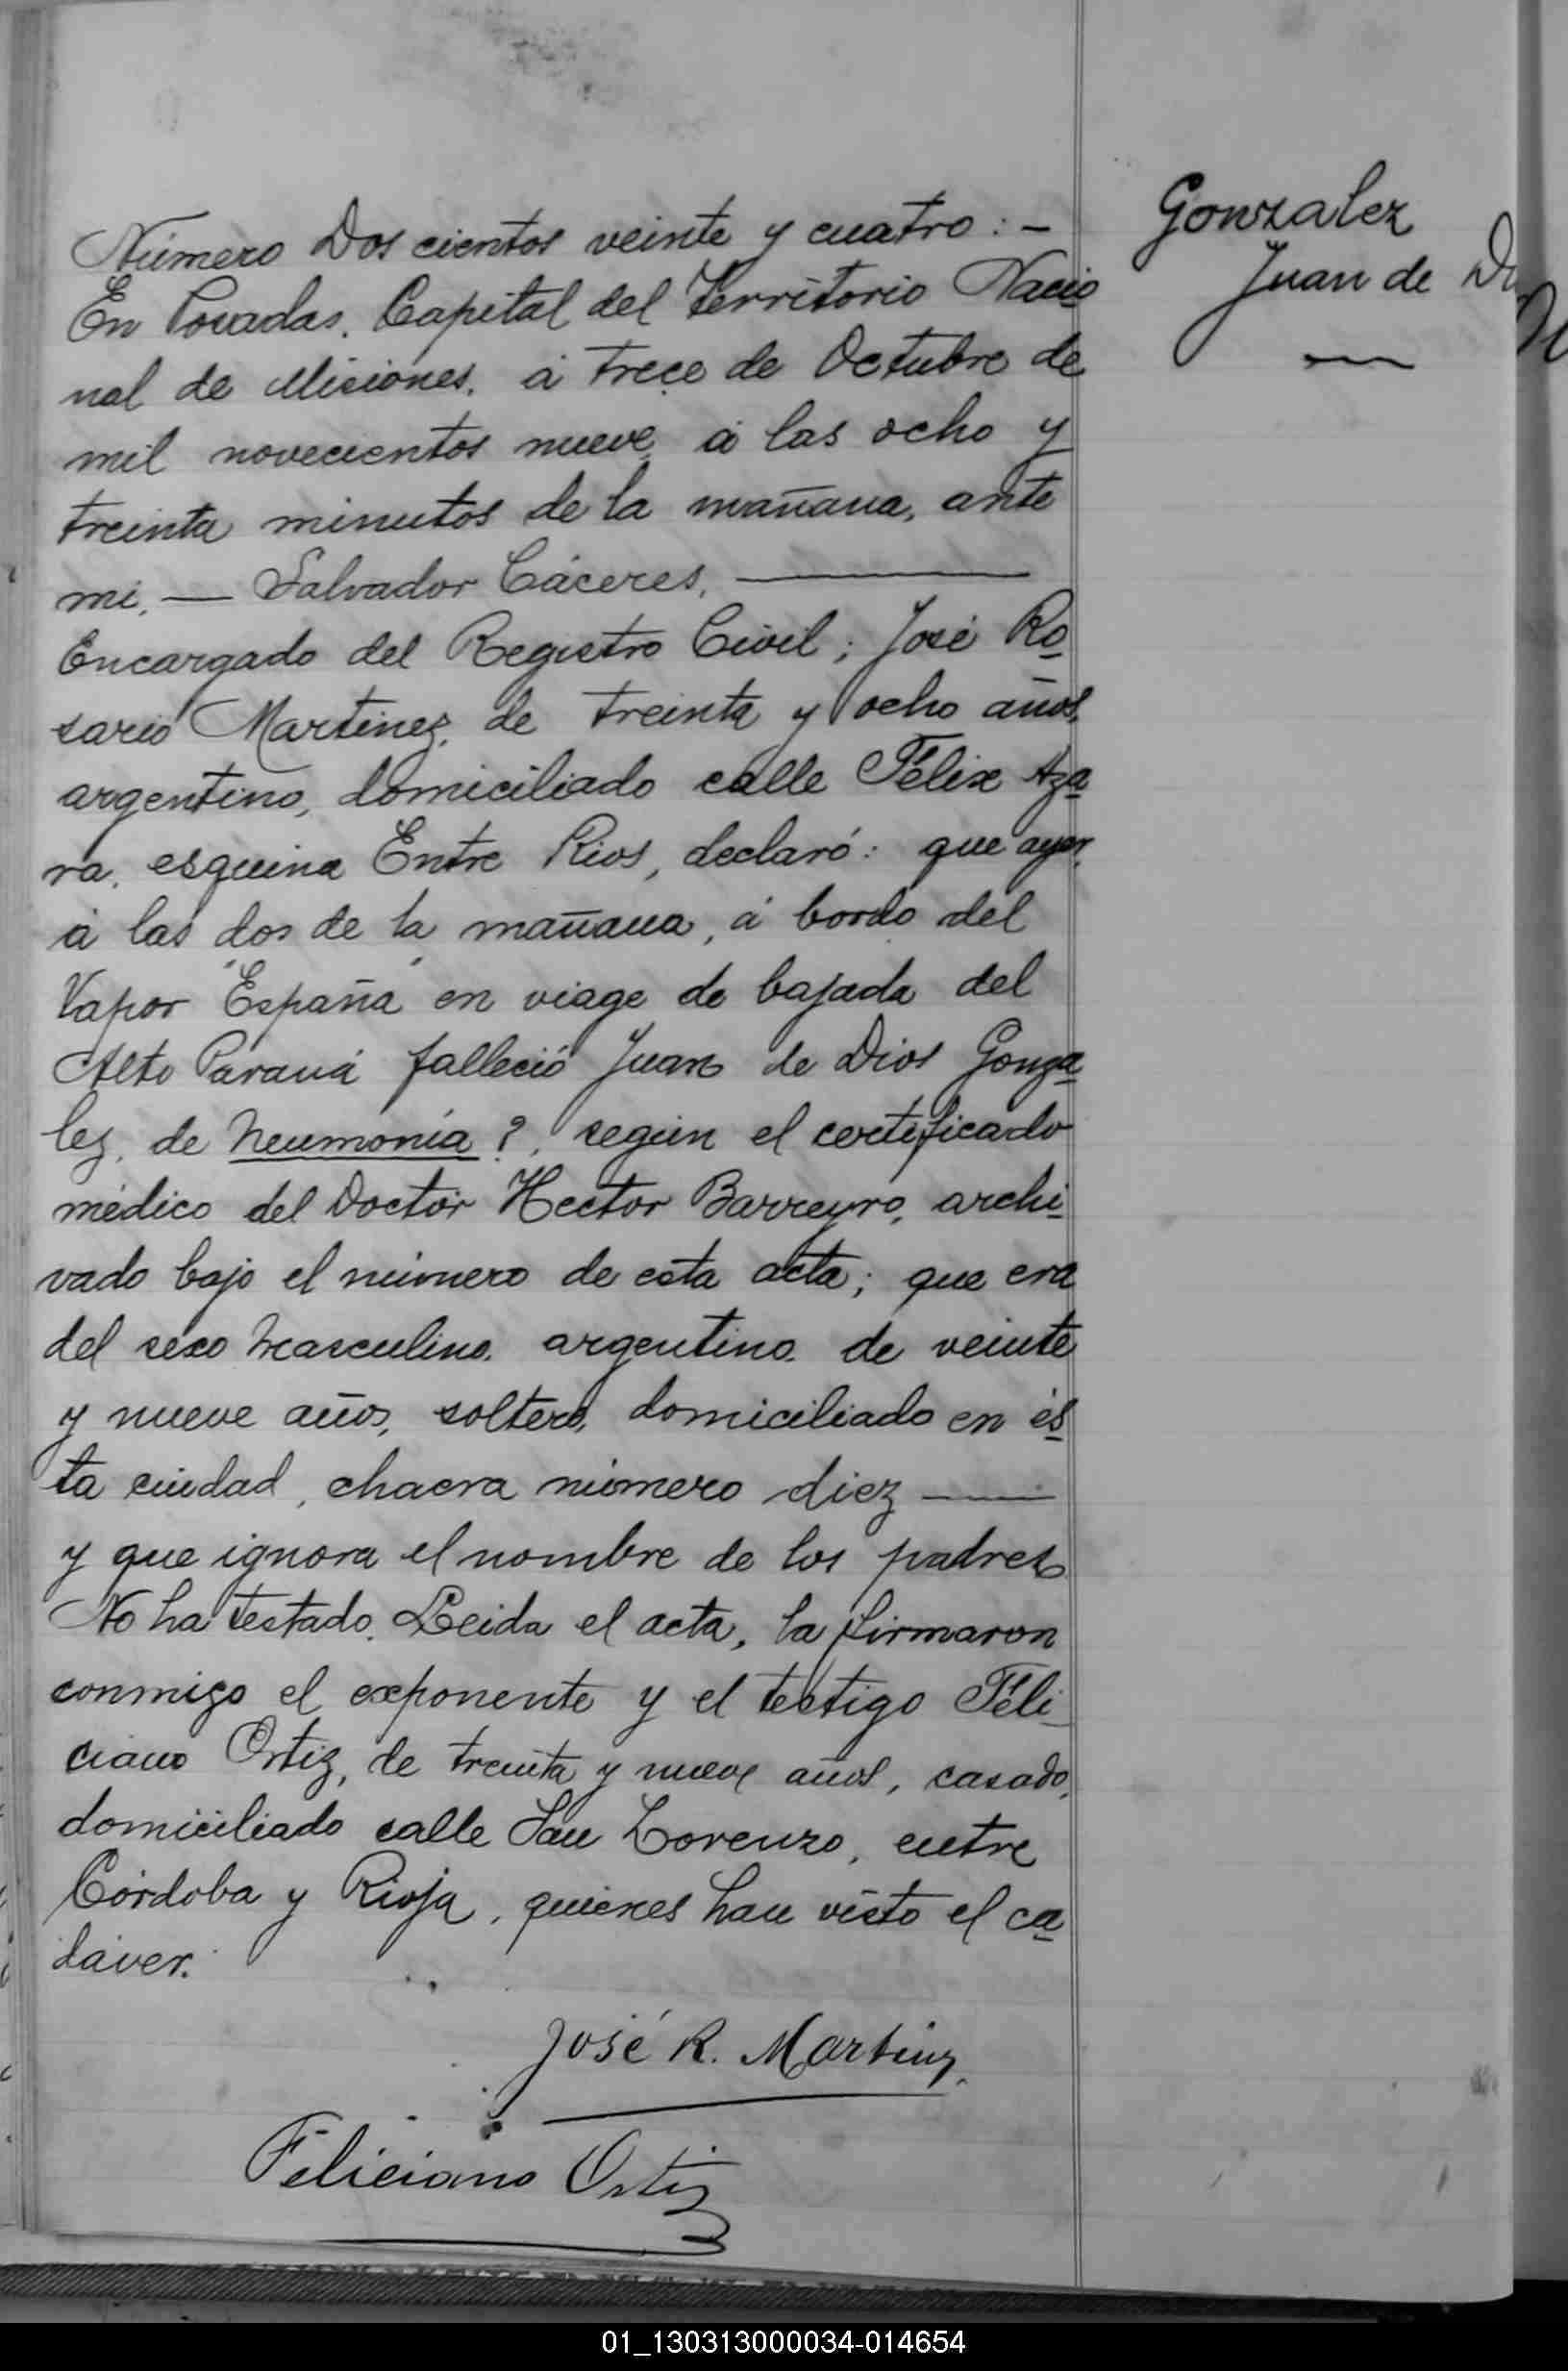 Gonzalez
Juan de
Número Dos cientos veinte y cuatro: -
En Posadas, Capital del Territorio Nacio
nal de Misiones, á trece de Octubre de
mil novecientos nueve, á las ocho y
treinta minutos de la mañana, ante
mi, — Salvador Cáceres, —
Encargado del Registro Civil; José Ro
sario Martinez, de treinta y ocho años,
argentino, domiciliado calle Félix Aza
ra, esquina Entre Rios, declaró: que ayer,
á las dos de la mañana, á bordo del
Vapor "España" en viage de bajada del
Alto Paraná falleció Juan de Dios Gonza
lez, de Neumonia?, según el certificado
médico del Doctor Hector Barreyro, archi
vado bajo el número de esta acta; que era
del sexo masculino, argentino, de veinte
y nueve años, soltero, domiciliado en és
ta ciudad, chacra número diez —
y que ignora el nombre de los padres
No ha testado. Leida el acta, la firmaron
conmigo el exponente y el testigo Féli
ciano Ortiz, de treinta y nueve años, casado,
domiciliado calle San Lorenzo, entre
Córdoba y Rioja, quienes han visto el ca
dáver.
José R. Martinez
Feliciano Ortiz
01_130313000034-014654